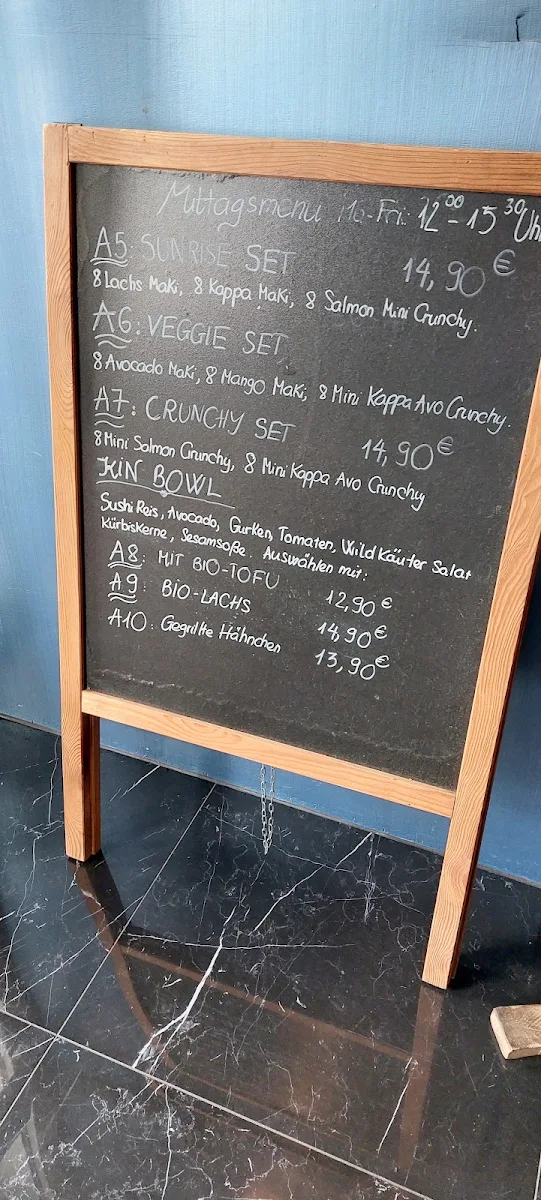 Mittagsmenü Mo-Fri: 12⁰⁰ - 15³⁰ Uhr
A5: SUNRISE SET 14,90 €
8 Lachs Maki, 8 Kappa Maki, 8 Salmon Mini Crunchy.
A6: VEGGIE SET
8 Avocado Maki, 8 Mango Maki, 8 Mini Kappa Avo Crunchy.
A7: CRUNCHY SET 14,90 €
8 Mini Salmon Crunchy, 8 Mini Kappa Avo Crunchy
KIN BOWL
Sushi Reis, Avocado, Gurken, Tomaten, Wild Käuter Salat
Kürbiskerne, Sesamsoße. Auswählen mit:
A8: MIT BIO-TOFU 12,90 €
A9: BIO-LACHS 14,90 €
A10: Gegrillte Hähnchen 13,90 €